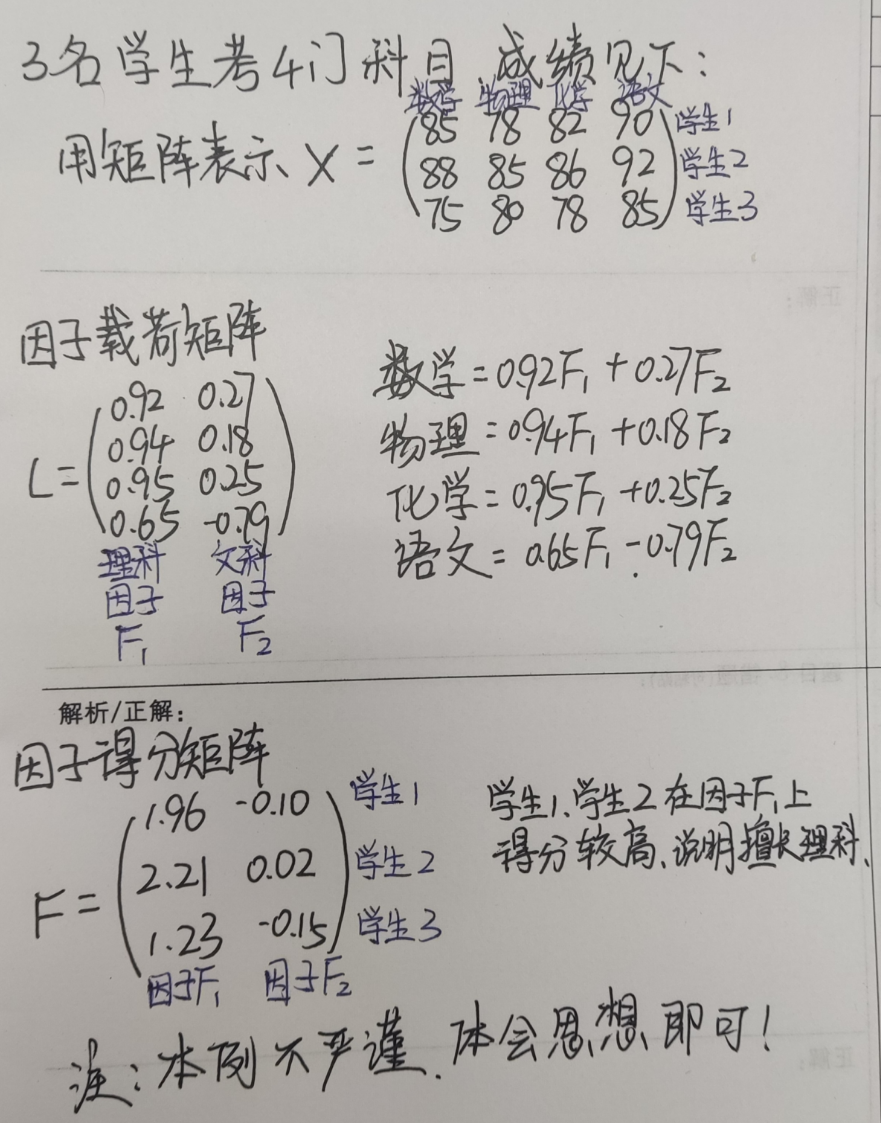 3名学生考4门科目 成绩见下:
数学 物理 化学 语文
用矩阵表示 X =
85 78 82 90 学生1
88 85 86 92 学生2
75 80 78 85 学生3
因子载荷矩阵
L =
0.92 0.27
0.94 0.18
0.95 0.25
0.65 -0.79
理科 文科
因子 因子
F₁ F₂
数学=0.92F₁+0.27F₂
物理=0.94F₁+0.18F₂
化学=0.95F₁+0.25F₂
语文=0.65F₁-0.79F₂
解析/正解:
因子得分矩阵
F =
1.96 -0.10 学生1
2.21 0.02 学生2
1.23 -0.15 学生3
因子F₁ 因子F₂
学生1、学生2在因子F₁上
得分较高、说明擅长理科、
注:本例不严谨、体会思想即可!